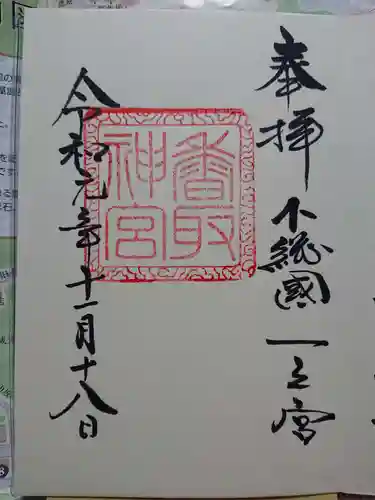 奉拝
下総國一之宮
香取
神宮
令和元年十一月十八日